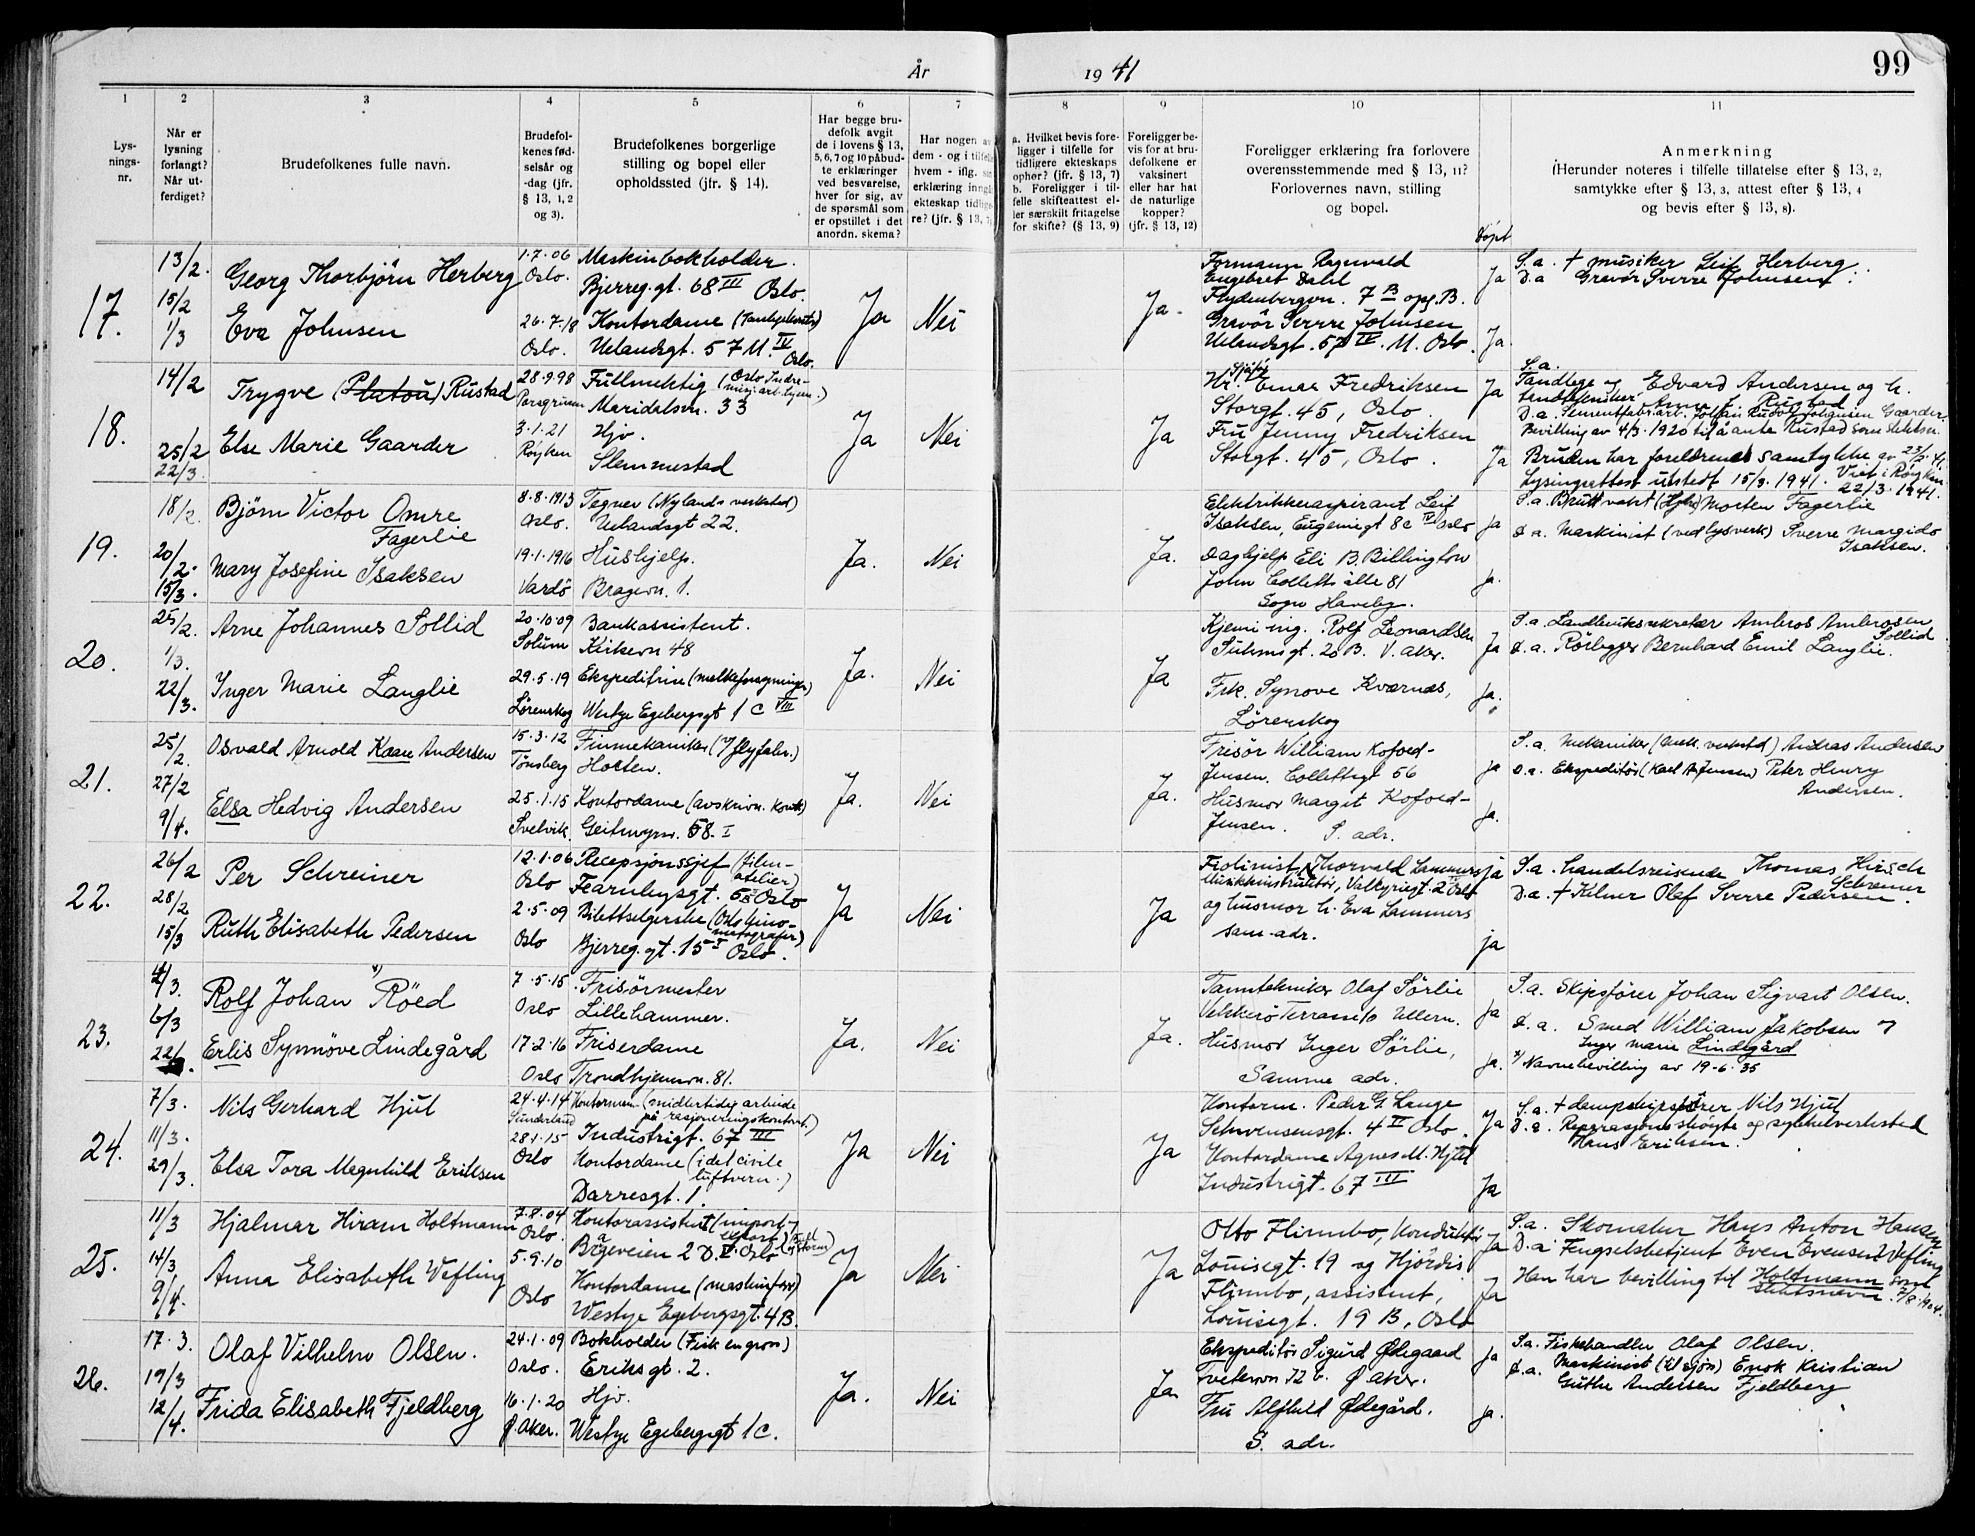 År
19 41
99
1
2
3
4
5
6
7
8
9
10
11
Lys-
nings-
nr.
Når er
lysning
forlangt?
Når ut-
ferdiget?
Brudefolkenes fulle navn.
Brudefol-
kenes fød-
selsår og
-dag (jfr.
§ 13, 1, 2
og 3).
Brudefolkenes borgerlige
stilling og bopel eller
opholdssted (jfr. § 14).
Har begge bru-
defolk avgit
de i lovens § 13,
5, 6, 7 og 10 påbud-
te erklæringer
ved besvarelse,
hver for sig, av
de spørsmål som
er opstillet i det
anordn. skema?
Har nogen av
dem - og i tilfelle
hvem - iflg. sin
erklæring inngått
ekteskap tidlige-
re? (jfr. § 13,
a. Hvilket bevis fore-
ligger i tilfelle for
tidligere ekteskaps
ophør? (jfr. § 13, 7)
b. Foreligger i til-
felle skifteattest el-
ler særskilt fritagelse
for skifte? (§ 13, 9)
Foreligger be-
vis for at bru-
defolkene er
vaksinert
eller har hat
de naturlige
kopper?
(jfr. § 13, 12)
Foreligger erklæring fra forlovere
overensstemmende med § 13, 11?
Forlovernes navn, stilling
og bopel.
Døpt
Anmerkning
(Herunder noteres i tilfelle tillatelse efter § 13, 2,
samtykke efter § 13, 3, attest efter § 13, 4
og bevis efter § 13, 8).
17.
13/2.
15/2
1/3
Georg Thorbjørn Herberg
Eva Johnsen
1.7.06
Oslo.
26.7.18
Oslo.
Maskinbokholder.
Bjerreg.gt. 68 III Oslo.
Kontordame
Uelandsgt. 57 M. IV Oslo.
Ja
Nei
Ja.
Formann Ragnvald
Engebret Dahl
7 B opg. B.
Gravør Sverre Johnsen
Uelandsgt. 57 IV. M. Oslo.
Ja
Ja.
S.a. † musiker Leif Herberg.
D.a Gravør Sverre Johnsen.
18.
14/2
25/2
22/3.
Trygve (Platou) Rustad
Else Marie Gaarder
28.9.98
Porsgrunn
3.1.21
Røyken
Fullmektig (Oslo Indre-
Maridalsvn. 33
Hjv.
Slemmestad
Ja
Nei
Ja
Hr. Einar Fredriksen
Storgt. 45, Oslo.
Fru Jenny Fredriksen
Storgt. 45, Oslo.
Ja
Ja
S.a.
Tandlege og Edvard Andersen og h.
Anna L. Rustad
D.a. Sementfabr.arb. Johan Rudolf Johansen Gaarder.
Bevilling av 4/3. 1920 til å anta Rustad som slektsn.
Bruden har foreldrenes samtykke av 23/2. 41.
Lysningsattest utstedt 15/3. 1941. Viet i Røyken
22/3. 1941.
19.
18/2.
20/2.
15/3.
Bjørn Victor Omre
Fagerlie
Mary Josefine Isaksen
8.8.1913
Oslo.
19.1.1916
Vardö
Tegner (Nylands verksted)
Uelandsgt 22.
Hushjelp.
Bragevn. 1.
Ja.
Nei
Ja.
Elektrikeraspirant Leif
Isaksen, Eugeniegt 8c IV Oslo
Daghjelp Eli B. Billington
John Colletts alle 81
Sogn Haveby.
Ja
Ja.
S.a. Morten Fagerlie
D.a. Maskinist (ved lysverk) Sverre Margido
Isaksen.
20.
25/2.
1/3.
22/3.
Arne Johannes Sollid
Inger Marie Langlie
20.10.09
Solum
29.5.19
Lörenskog
Bankassistent.
Kirkevn 48
Ekspeditrise (melkeforsyningen)
Westye Egebergsgt 1 C VIII
Ja.
Nei
Ja
Kjemi ing. Rolf Leonardsen
Suhmsgt. 20 B. V. aker.
Frk. Synove Kværnæs,
Lörenskog
Ja
Ja.
S.a. Landbrukssekretær Ambros Ambrosen
Sollid
D.a. Rørlegger Bernhard Emil Langlie.
21.
25/2.
27/2
9/4.
Osvald Arnold Kaare Andersen
Elsa Hedvig Andersen
15.3.12
Tönsberg
25.1.15
Svelvik
Finmekaniker (Flyfabr.)
Horten.
Kontordame (avskrivn. kont)
Geitmyrsv. 58. I
Ja.
Nei
Ja.
Frisör William Kofoed-
Jensen. Collettsgt 56
Husmor Margit Kofoed-
Jensen. S. adr.
Ja
Ja.
S.a. Mekaniker (mek. verksted) Andras Andersen
D.a. Ekspeditör (Karl A Jensen) Peter Henry
Andersen.
22.
26/2
28/2
15/3
Per Schreiner
Ruth Elisabeth Pedersen
12.1.06
Oslo
2.5.09
Oslo
Recepsjonssjef (film-
atelier)
Fearnleysgt. 5 Oslo
Bilettselgerske (Oslo Kino-
matografer)
Bjerreg.gt. 15 I Oslo.
Ja
Nei
Ja
Fiolinist Thorvald Lammers
Musikkinstruktør, Valkyriegt. 2 Oslo
og husmor h. Eva Lammers
sam. adr.
ja
ja
S.a. handelsreisende Thomas Hirsch
Schreiner
D.a. † Kelner Olaf Sverre Pedersen.
23.
4/3.
6/3
22/
Rolf Johan x) Röed
Erlis Synnöve Lindegård
7.5.15
Oslo
17.2.16
Oslo
Frisörmester
Lillehammer.
Friserdame
Trondhjemsvn. 81.
Ja.
Nei
Ja.
Tanntekniker Olaf Sörlie
Vekkerö Terrasse 10 Ullern.
Husmor Inger Sörlie,
Samme adr.
Ja
Ja.
S.a. Skipsförer Johan Sigvart Olsen.
D.a. Smed William Jakobsen
Inger Marie Lindegård
x) Navnebevilling av 19-6.35
24.
7/3.
11/3.
29/3.
Nils Gerhard Hjul
Elsa Tora Magnhild Eriksen
24.4.14
Sunderland
28.1.15
Oslo
Kontormann (midlertidig arbeide
på rasjoneringskontoret.)
Industrigt. 67 III
Kontordame (i det civile
luftvern.)
Darresgt. 1.
Ja
Nei
Ja
Kontorm. Peder G. Lange
Schwensensgt. 4 II Oslo.
Kontordame Agnes M. Hjul
Industrigt. 67 III
Ja
Ja
S.a. † dampskipsfører Nils Hjul
D.a. Reparasjons og sykkelverksted
Hans Eriksen.
25.
11/3
14/3
9/4.
Hjalmar Hiram Holtmann
Anna Elisabeth Vefling
7.8.04
Oslo.
5.9.10
Oslo
Kontorassistent (import-
2 D. V. Oslo
Kontordame (maskinforr)
Westye Egebergsgt. 4B.
Ja
Nei
Ja
Otto Flimbo, konduktör
Louisegt. 19 og Hjördis
Flimbo, assistent,
Louisegt. 19 B, Oslo
Ja
Ja
S.a. Skomaker Hans Anton Hansen
D.a Fengselsbetjent Even Evensen Vefling
Han har bevilling til Holtmann som
slektsnavn. 7/8.1904.
26.
17.3
19/3
12/4.
Olaf Vilhelm Olsen.
Frida Elisabeth Fjeldberg
24.1.09
Oslo.
16.1.20
Ø. Aker.
Bokholder (Fisk engros)
Eriksgt. 2.
Hjv.
Westye Egebergsgt 1C.
Ja.
Nei
Ja
Ekspeditör Sigurd Ødegaard
Tvetenvn 72 b. Ø aker.
Fru Alfhild Ødegård.
S. adr.
Ja
Ja.
S.a. Fiskehandler Olaf Olsen.
D.a. Maskinist (til sjøs) Enok Kristian
Guthe Andersen Fjeldberg